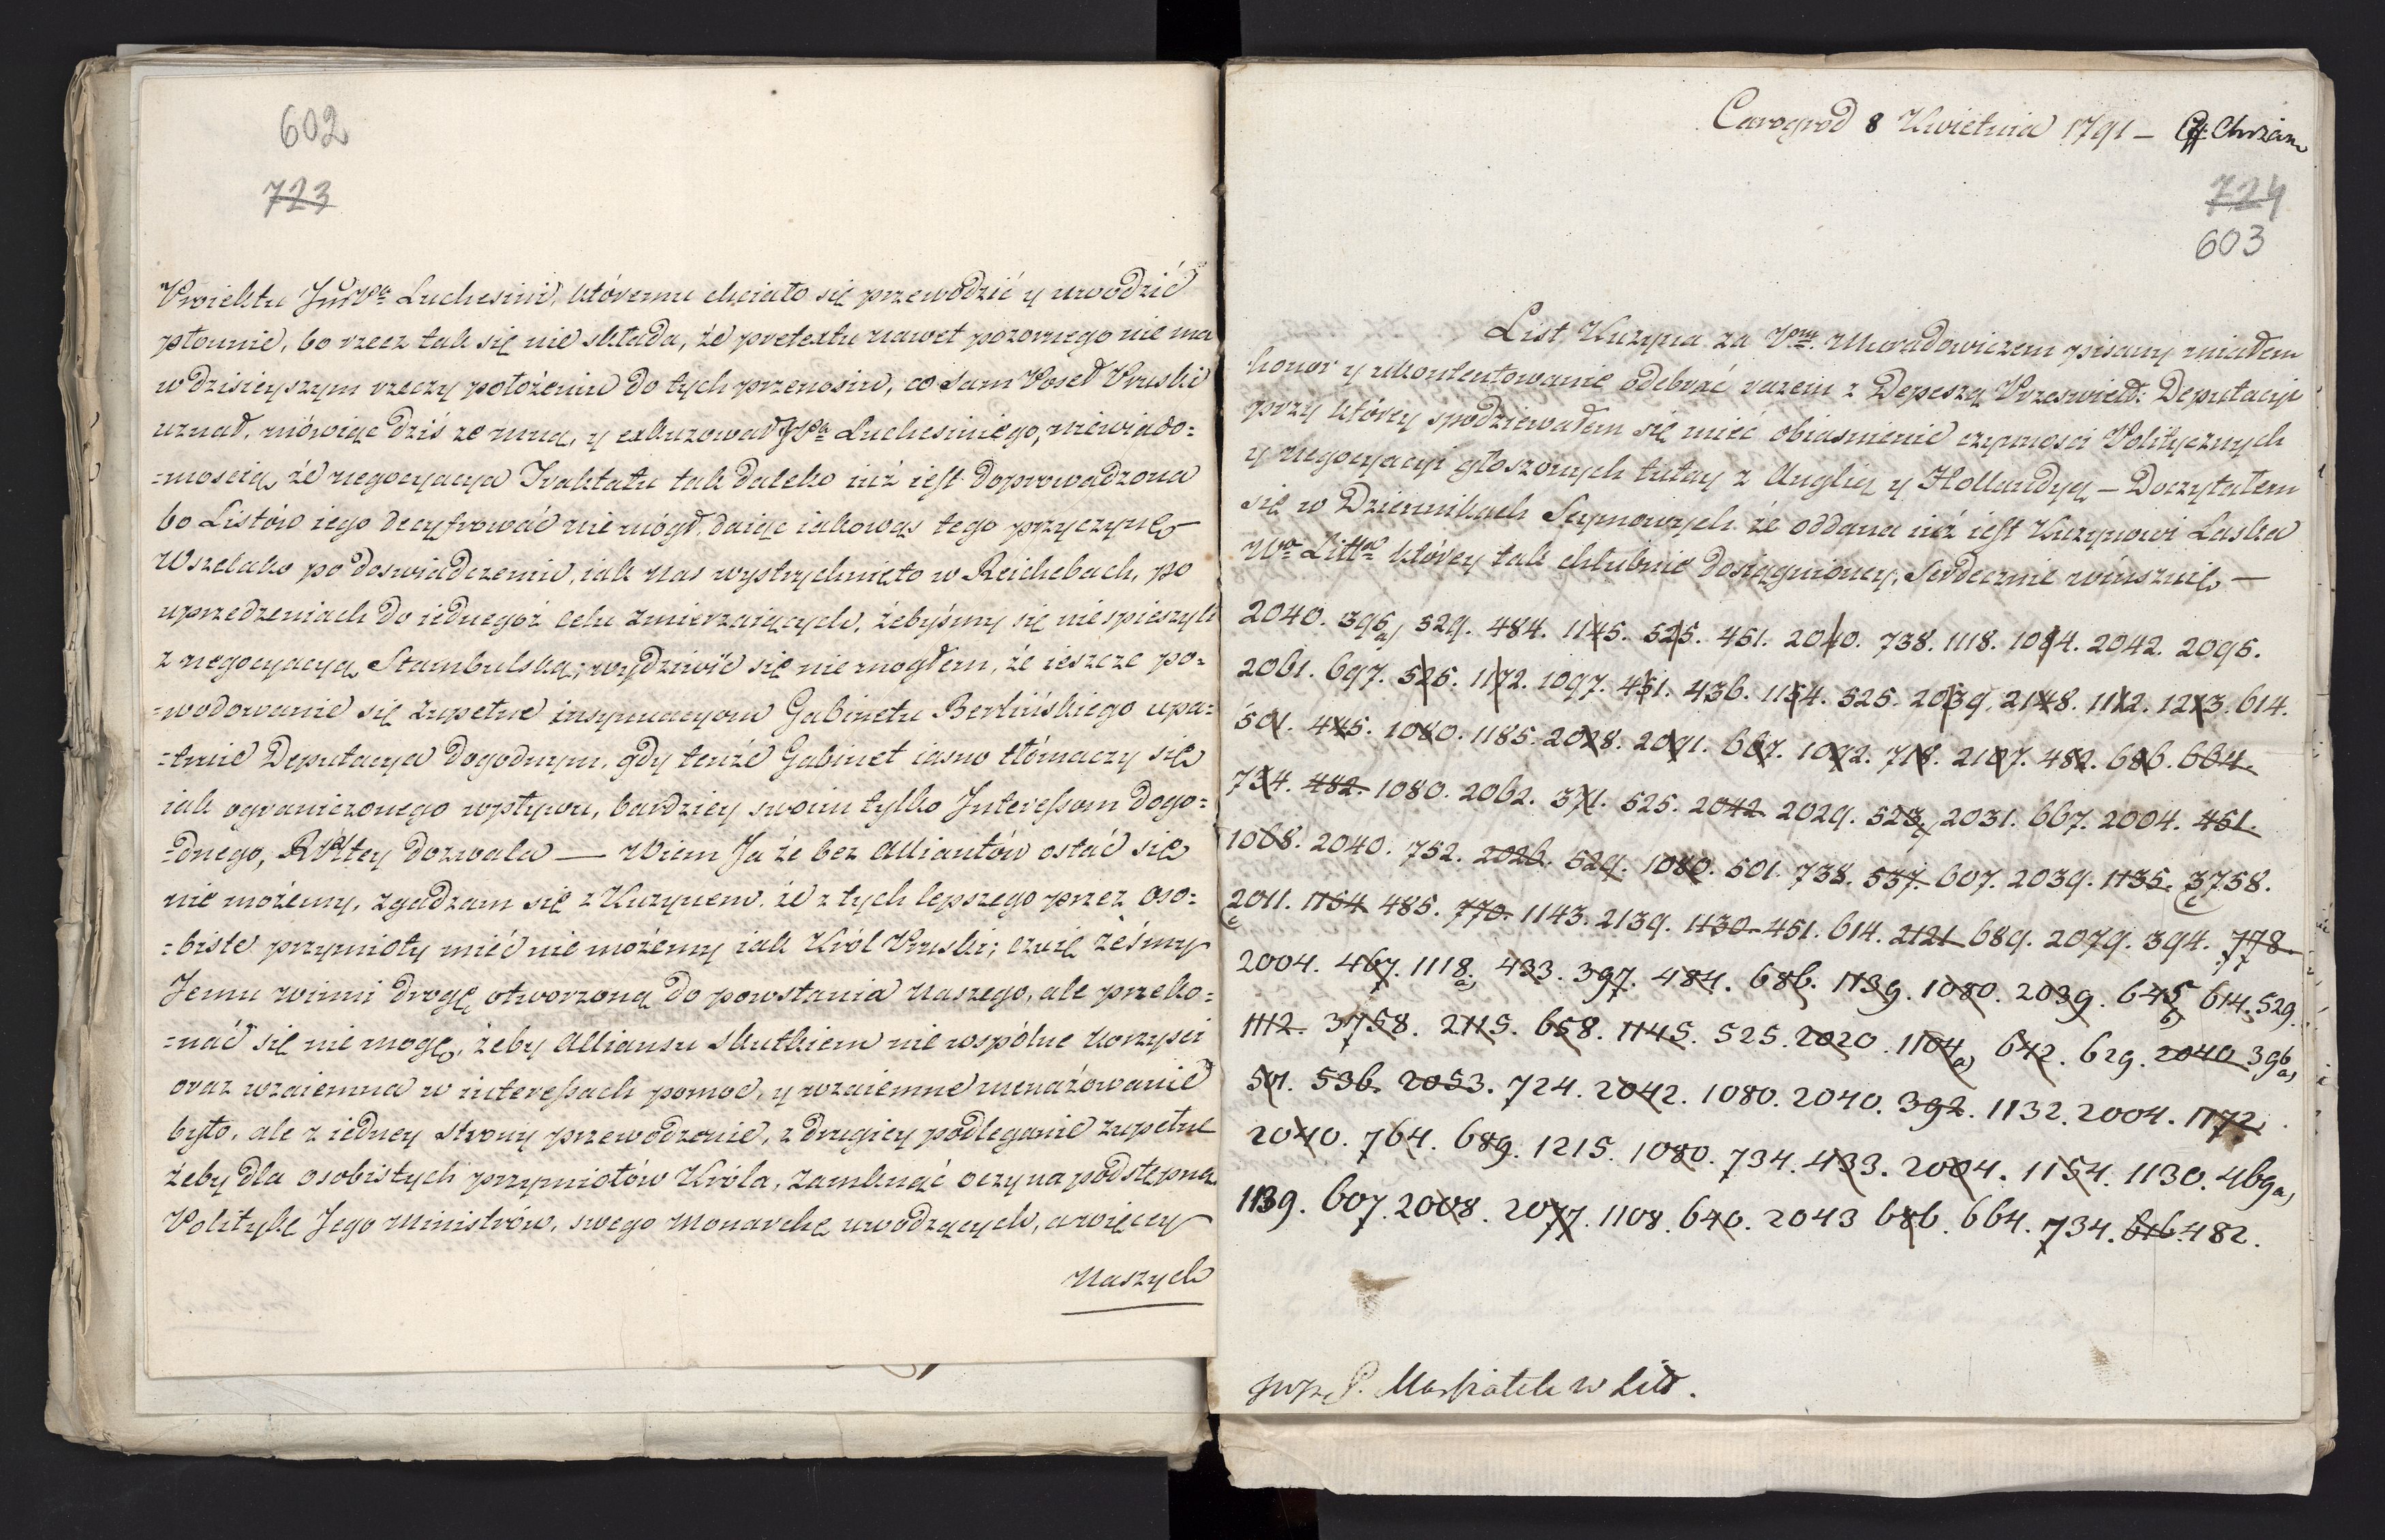 602
723
Proiektu JmPa Luchesini, któremu chciało się przewodzić y uwodzić
płonnie, bo rzecz tak się nie składa, że pretextu nawet pozornego nie ma
w dzisieyszym rzeczy położeniu do tych przenosin, co sam Poseł Pruski
uznał, mówiąc dziś ze mną, y exkuzował JPa Luchesiniego, niewiado=
=mością, że negocyacya Traktatu tak daleko iuż iest doprowadzona
bo Listów iego decyfrować nie mógł, daiąc iakowąś tego przyczynę
Wszelako po doswiadczeniu, iak nas wystrychnięto w Reichebach, po
uprzedzeniach do iednegoż celu zmierzaiących, żebyśmy się nie spieszyli
z negocyacyą Stambulską, wydziwić się nie mogłem, że ieszcze po=
=wodowanie się zupełne insynuacyom Gabinetu Berlińskiego upa=
=truie Deputacya dogodnym, gdy tenże Gabinet iasno tłómaczy się
iak ograniczonego wpływu, bardziey swoim tylko Interessom dogo=
=dnego, RPltey dozwala — Wiem Ja że bez Alliantów ostać się
nie możemy, zgadzam się z Kuzynem, że z tych lepszego przez oso=
=biste przymioty mieć nie możemy iak Król Pruski; czuię żeśmy
Jemu winni drogę otworzoną do powstania naszego, ale przeko=
=nać się nie mogę, żeby Alliansu skutkiem nie wspólne korzyści
oraz wzaiemna w interessach pomoc, y wzaiemne menażowanie
było, ale z iedney strony przewodzenie, z drugiey podleganie zupełne
żeby dla osobistych przymiotów Króla, zamknąć oczy na podstępną
Politykę Jego Ministrów, swego Monarchę uwodzących, a więcey
Naszych
Carogrod 8 Kwietnia 1791 — Chrzan
724
603
List Kuzyna za Pnem Muradowiczem pisany miałem
honor y ukontentowanie odebrać razem z Depeszą Przeswietł: Deputacyi
przy którey spodziewałem się mieć obiasnienie czynnosci Politycznych
y negocyacyi głoszonych tutay z Anglią y Hollandyą — Doczytałem
się w Dziennikach Seymowych że oddana iuż iest Kuzynowi Laska
Wa Littł którey tak chlubnie dosiągnioney, serdecznie winszuię —
2040. 395a) 329. 484. 1145. 525. 451. 2040. 738. 1118. 1094. 2042. 2095.
2061. 697. 525. 1172. 1097. 451. 436. 1154. 525. 2039. 2148. 1112. 1213. 614.
501. 445. 1080. 1185. 2028. 2091. 667. 1092. 718. 2107. 482. 686. 604.
734. 482. 1080. 2062. 371. 525. 2042. 2029. 523. 2031. 667. 2004. 451.
1068. 2040. 752. 2026. 529. 1080. 501. 738. 537. 607. 2039. 1135. 3758.
2011. 1154. 485. 770. 1143. 2139. 1130. 451. 614. 2121. 689. 2079. 394. 778.
2004. 467. 1118.a) 433. 397. 484. 686. 1139. 1080. 2039. 645 614. 529.
1112. 3758. 2115. 658. 1145. 525. 2020. 1104a) 642. 629. 2040. 396a)
501. 536. 2053. 724. 2042. 1080. 2040. 392. 1132. 2004. 1172.
2040. 764. 689. 1215. 1080. 734. 433. 2004. 1154. 1130. 469a)
1139. 607. 2008. 2077. 1108. 640. 2043 686. 664. 734. 616. 482.
P. Marszałek w Litt.